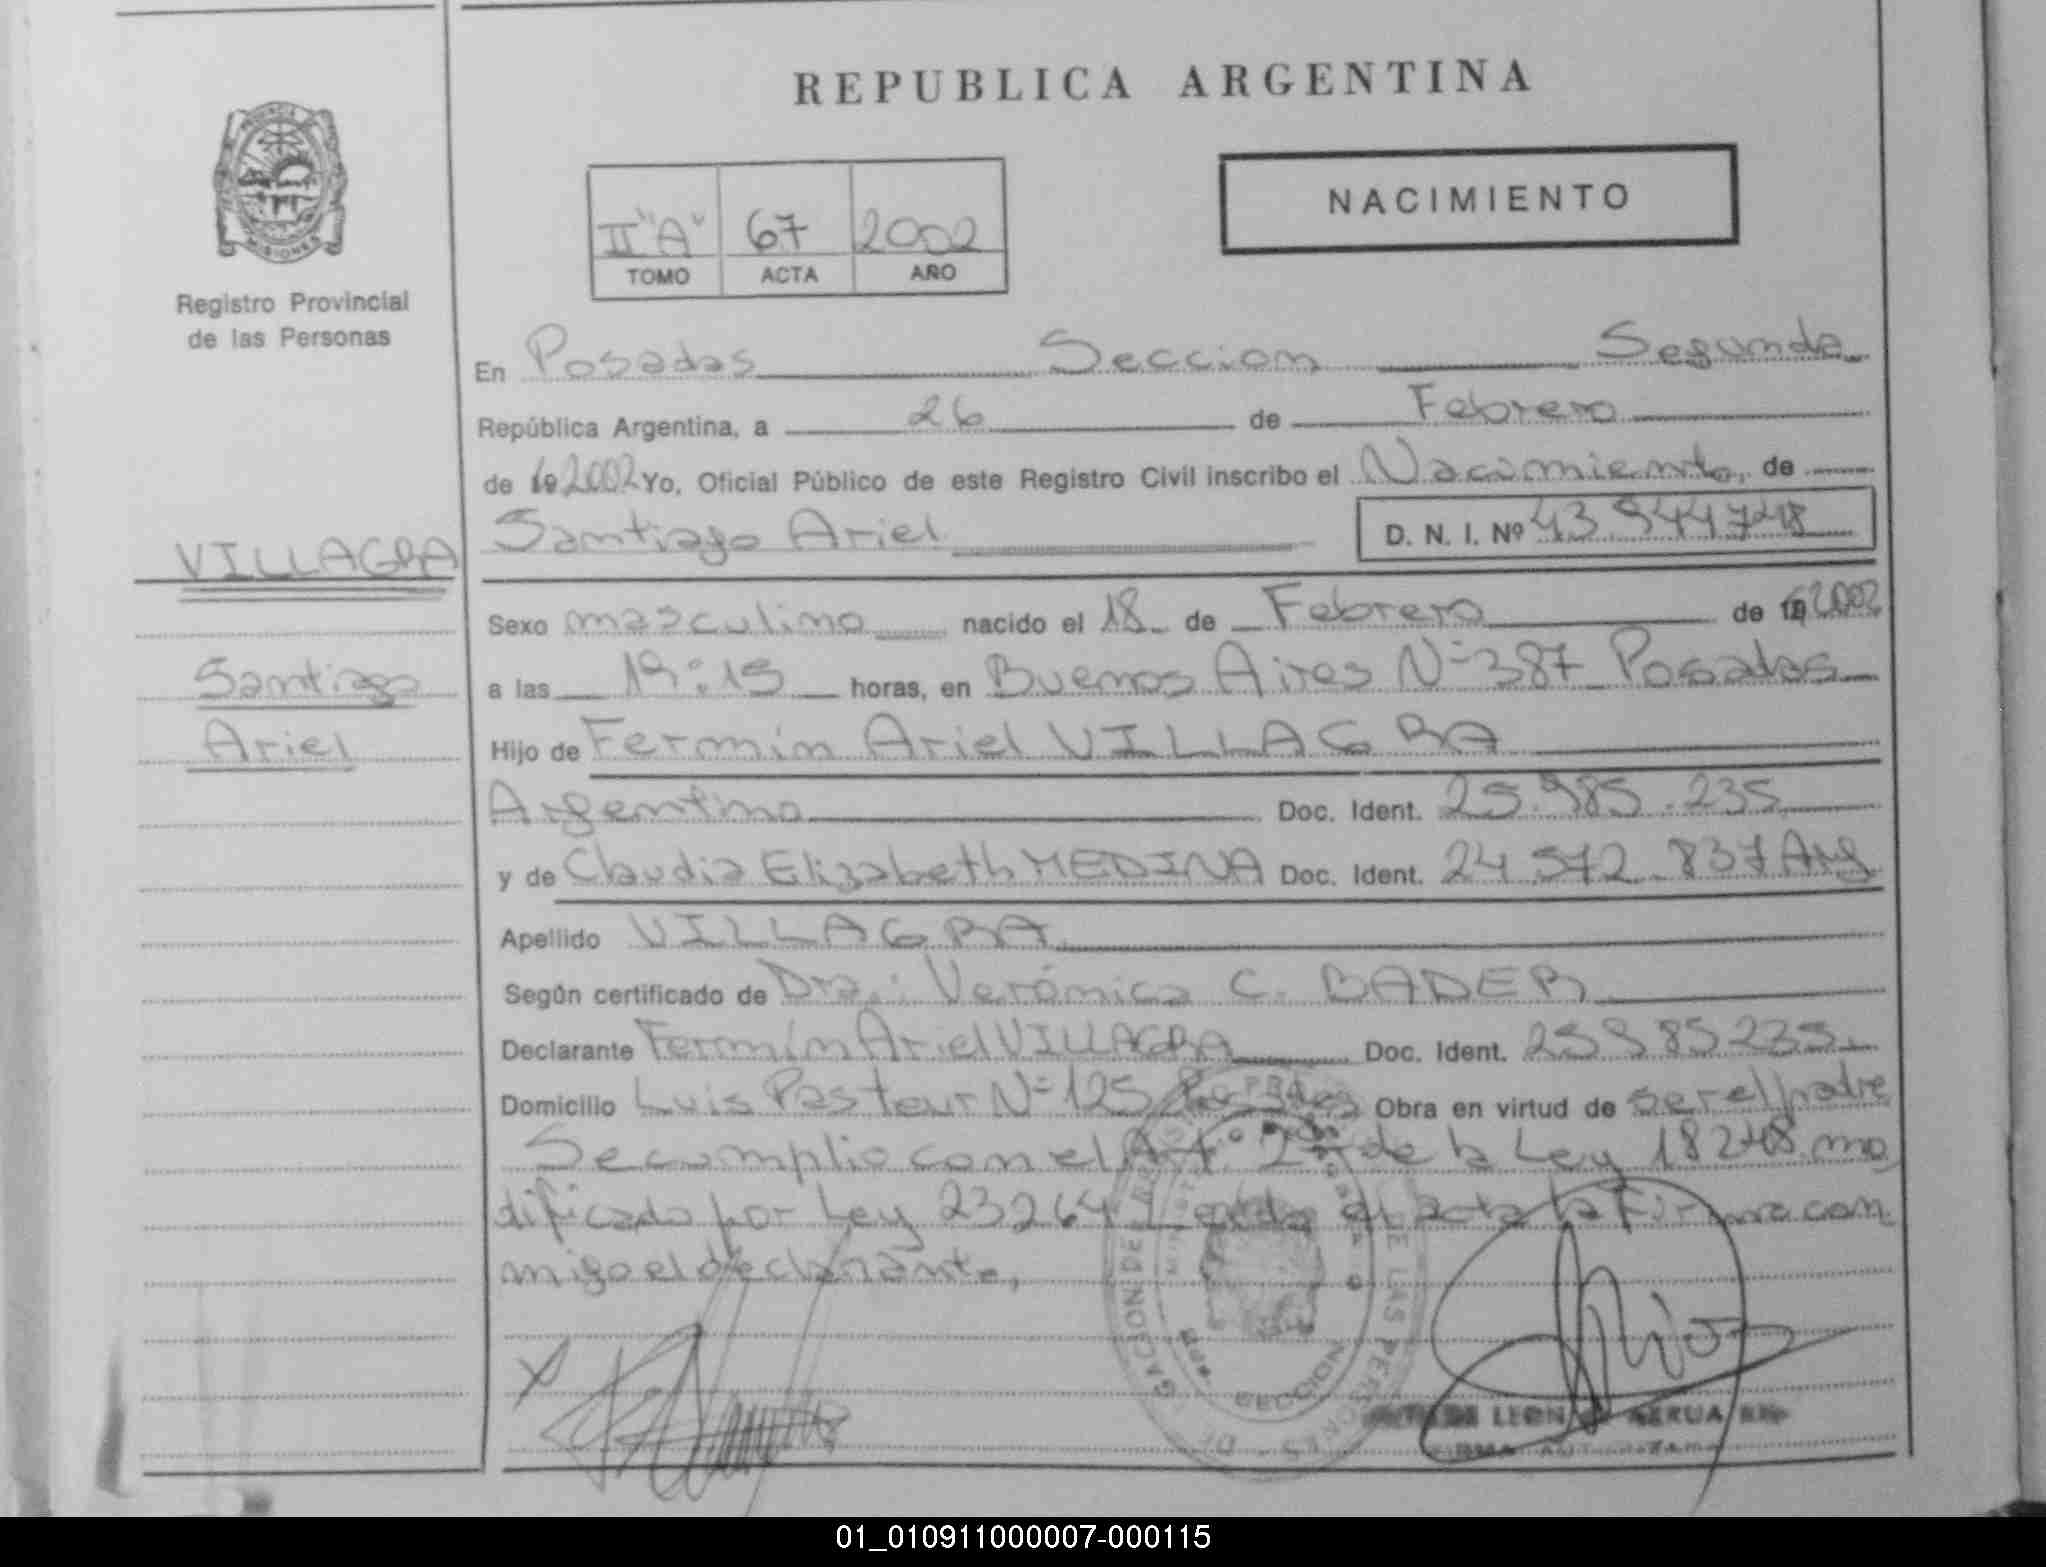 REPUBLICA ARGENTINA
PROVINCIA DE
MISIONES
Registro Provincial
de las Personas
NACIMIENTO
II "A" 67 2002
TOMO ACTA AÑO
En Posadas Seccion Segunda
República Argentina, a 26 de Febrero
de 19 2002 Yo, Oficial Público de este Registro Civil inscribo el Nacimiento, de
Santiago Ariel D. N. I. Nº 43.944.748
VILLAGRA
Sexo masculino nacido el 18 de Febrero de 19 2002
Santiago
a las 19:15 horas, en Buenos Aires Nº 387 Posadas
Ariel
Hijo de Fermín Ariel VILLAGRA
Argentino Doc. Ident. 25.985.235
y de Claudia Elizabeth MEDINA Doc. Ident. 24.572.837 Arg
Apellido VILLAGRA
Según certificado de Dra.: Verónica C. BADER
Declarante Fermín Ariel VILLAGRA Doc. Ident. 25985235
Domicilio Luis Pasteur Nº 125 Posadas Obra en virtud de ser el padre
Se cumplio con el Art. 2º de la Ley 18248 mo
dificado por Ley 23264 Leida el acta la firma con
migo el declarante,
SECCION
DE LEON
01_010911000007-000115